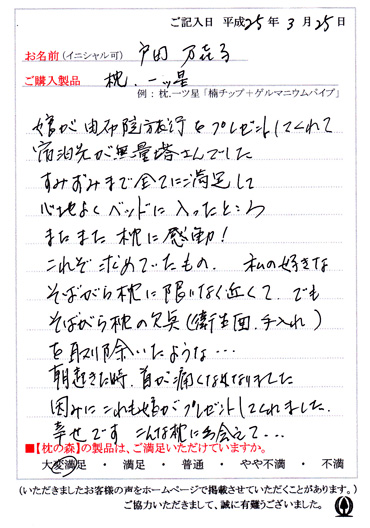 ご記入日 平成25年 3月25日
お名前(イニシャル可) 戸田 万喜子
ご購入製品 枕.一ッ星
例:枕.一ツ星「楠チップ+ゲルマニウムパイプ」
娘が由布院旅行をプレゼントしてくれて
宿泊先が無量塔さんでした
すみずみまで全てに満足して
心地よくベッドに入ったところ
またまた枕に感動!
これぞ求めていたもの. 私の好きな
そばがら枕に限りなく近くて.でも
そばがら枕の欠点(衛生面.手入れ)
を取り除いたような…
朝起きた時.首が痛くなくなりました
因みにこれも娘がプレゼントしてくれました.
幸せです こんな枕に出会えて…
■【枕の森】の製品は、ご満足いただけていますか。
大変満足 ・ 満足 ・ 普通 ・ やや不満 ・ 不満
(いただきましたお客様の声をホームページで掲載させていただくことがあります。)
ご協力いただきまして、誠に有難うございました。